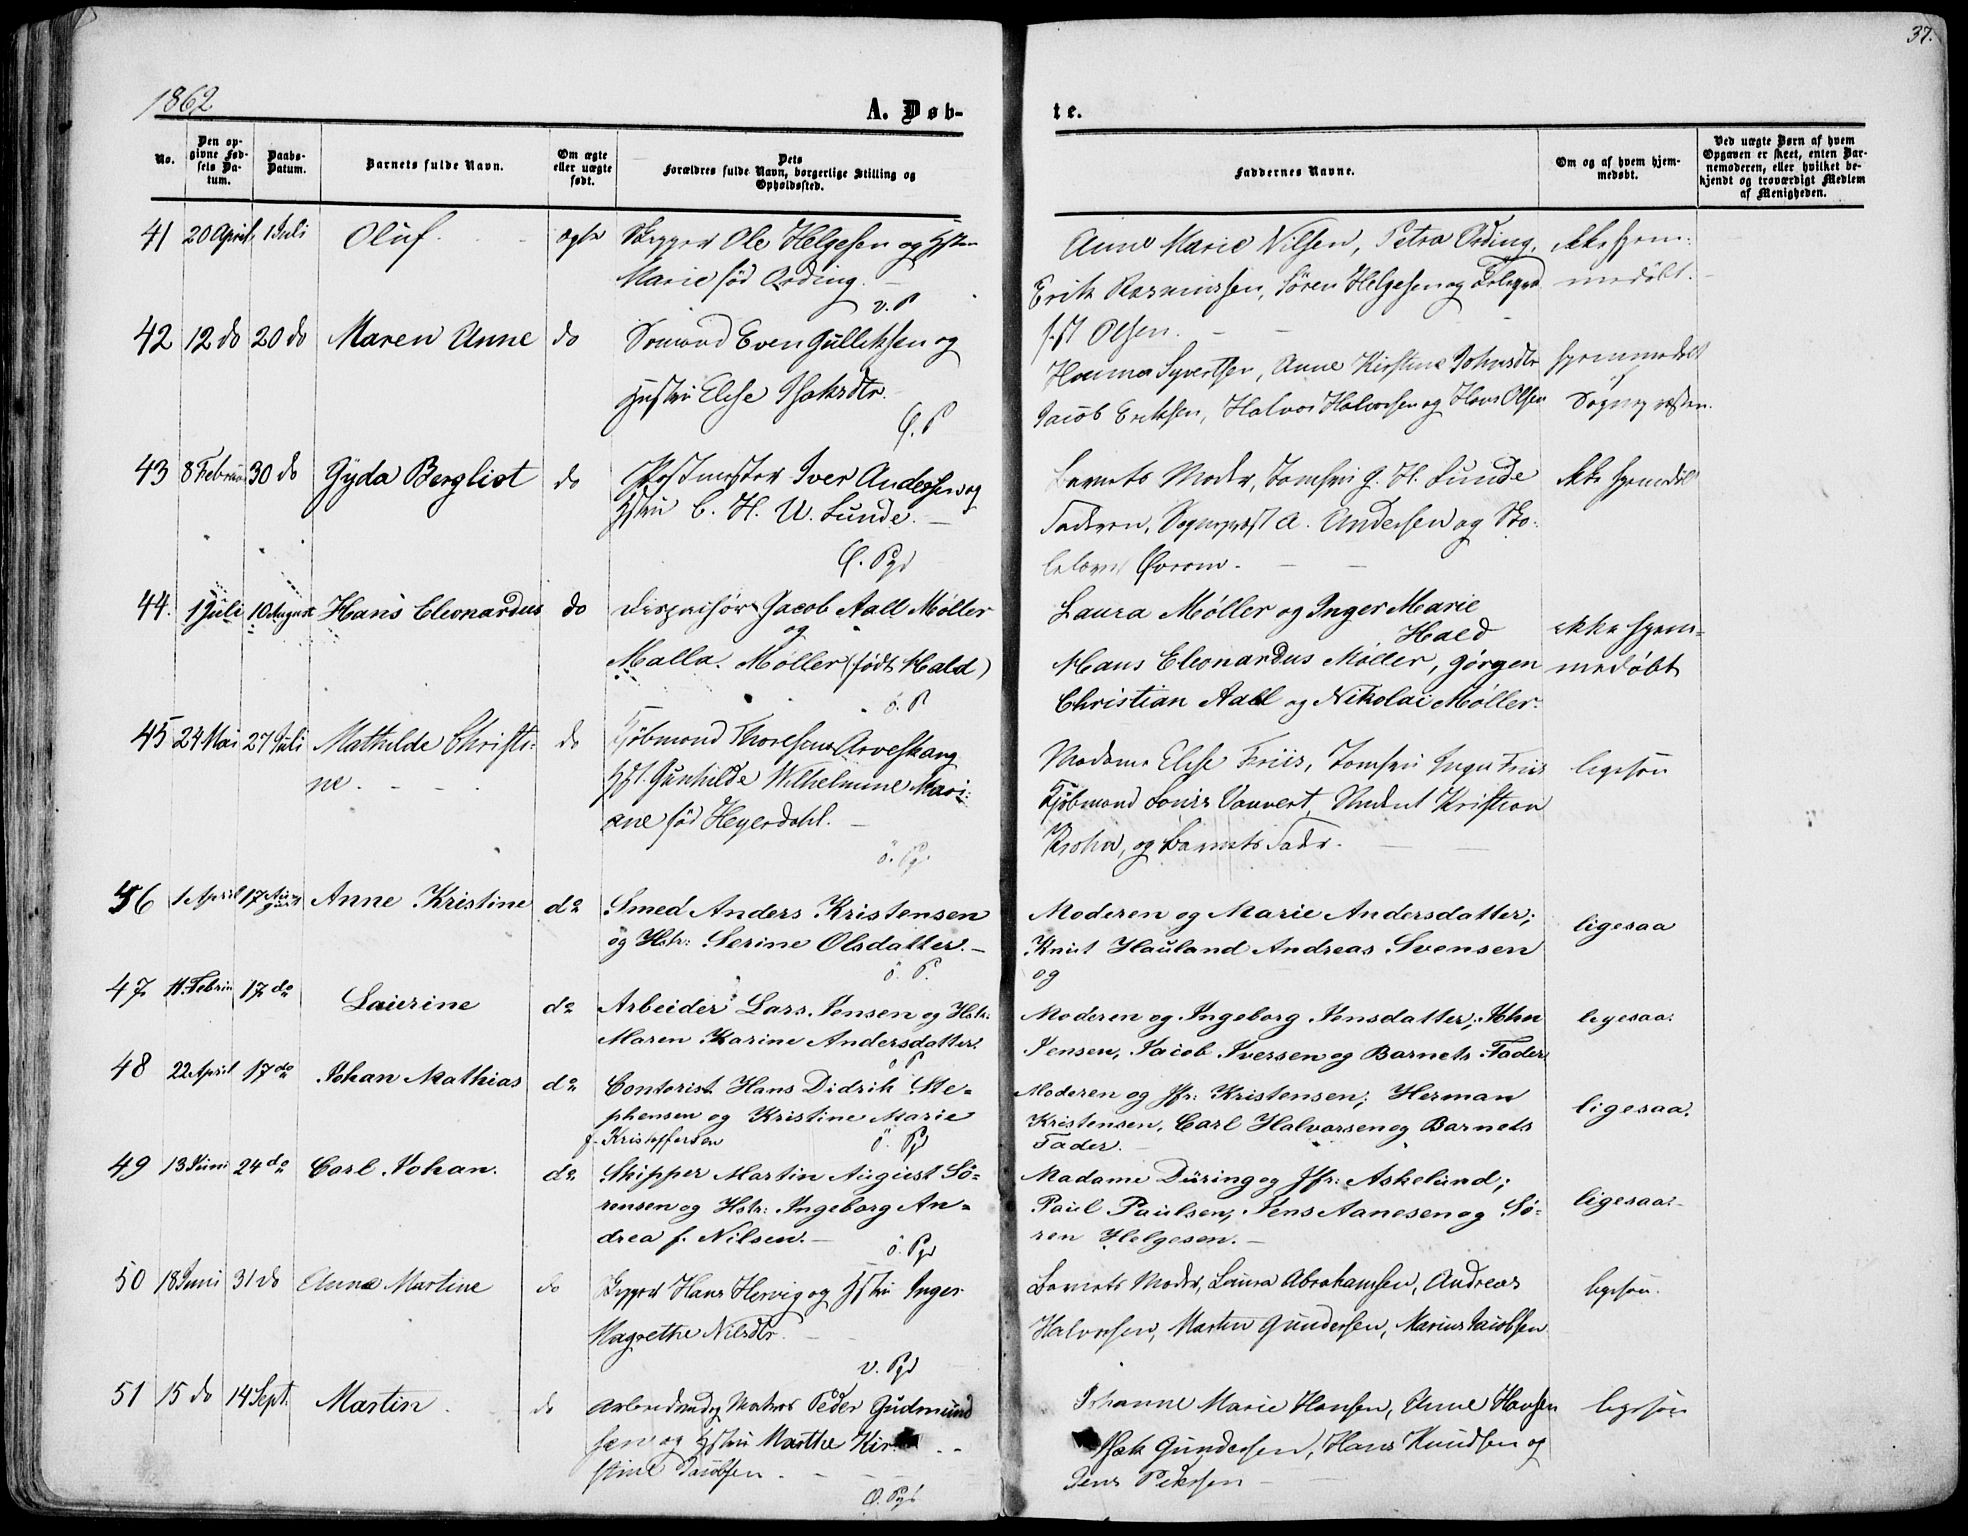 37.
1862
A. Døb-
te.
No.
Den op-
givne Fød-
sels Da-
tum.
Daabs-
Datum.
Barnets fulde Navn.
Om ægte
eller uægte
født.
Dets
Forældres fulde Navn, borgerlige Stilling og
Opholdssted.
Faddernes Navne.
Om og af hvem hjem-
medøbt.
Ved uægte Børn af hvem
Opgaven er skeet, enten Bar-
nemoderen, eller hvilket be-
kjendt og troværdigt Medlem
af Menigheden.
41 20 April 1 Juli Oluf. ægte Skipper Ole Helgesen og Hstru
Marie fød Ording.
v. P
Anne Marie Nilsen, Petra Ording,
Erik Rasmussen, Søren Helgesen og
Olsen.
ikke hjem-
medøbt.
42 12 do 20 do Maren Anne do Sømand Even Gulliksen og
Hustru Elise Isaksdtr.
Ø. P
Hanna Syvertsen, Anne Kirstine Johnsdtr
Jacob Eriksen, Halvor Halvorsen og Hans Olsen
hjemmedøbt
af
Sognepræsten.
43 8 Februar 30 do Gyda Bergliot do Postmester Iver Andersen og
Hstru C. H. U. Lunde.
Ø. Pgd
Barnets Moder, Jomfru G. H. Lunde
Faderen, Sognepræst A. Andersen og Sko-
lelærer Øverom.
ikke hjemdøbt
44. 1 Juli 10 August Hans Eleonardus do Dispachør Jacob Aall Møller
og
Malla. Møller (født Hald)
ö. P
Laura Møller og Inger Marie
Hald
Hans Eleonardus Møller, Jørgen
Christian Aall og Nikolai Møller.
ikke hjem-
medøbt
45 24 Mai 27 Juli Mathilde Christi-
ne. do Kjøbmand Thorlsen Arveskang
Hst. Gunhilde Wilhelmine Mari-
ane fød Heyerdahl.
ö. Pg.
Madame Elise Friis, Jomfru Inga Friis
Kjøbmand Louis Vauvert, Student Kristian
Krohn, og Barnets Fader.
ligesaa
46 1 April 17 August Anne Kristine do Smed Anders Kristensen
og Hstr: Serine Olsdatter.
ö. P.
Moderen og Marie Andersdatter;
Knut Hauland Andreas Svensen
og
ligesaa
47 11. Februar 17 do Laierine do Arbeider Lars Jensen og Hstr.
Maren Karine Andersdatter.
ö P
Moderen og Ingeborg Jensdatter; John
Jensen, Jacob Iversen og Barnets Fader
ligesaa.
48 22 April 17 do Johan Mathias do Contorist Hans Didrik Ste-
phensen og Kristine Marie
f. Kristoffersen
ö. Pg
Moderen og Jfr: Kristensen; Herman
Kristensen, Carl Halvorsen og Barnets
Fader.
ligesaa.
49 13 Juni 24 do Carl Johan. do Skipper Martin August Sö-
rensen og Hstr: Ingeborg An-
drea f. Nilsen.
ö. Pgd
Madame Düring og Jfr: Askelund;
Paul Paulsen, Jens Aanesen og Sö-
ren Helgesen.
ligesaa.
50 18 Juni 31 do Anna Martine do Skipper Hans Hervig og Hstru Inger
Magrethe Nilsdtr.
v. Pgd
Barnets Moder, Laura Abrahamsen, Andreas
Halvorsen, Martin Gundersen, Marius Jacobsen
ligesaa.
51 15 do 14 Sept. Martin. do Arbeidende Matros Peder Gudmund
sen og Hstru Marthe Kir
stine Jacobsen.
Ø. Pgd
Johanne Marie Hansen, Anne Hansen
Isak Gundersen, Hans Knudsen og
Jens Petersen
ligesaa